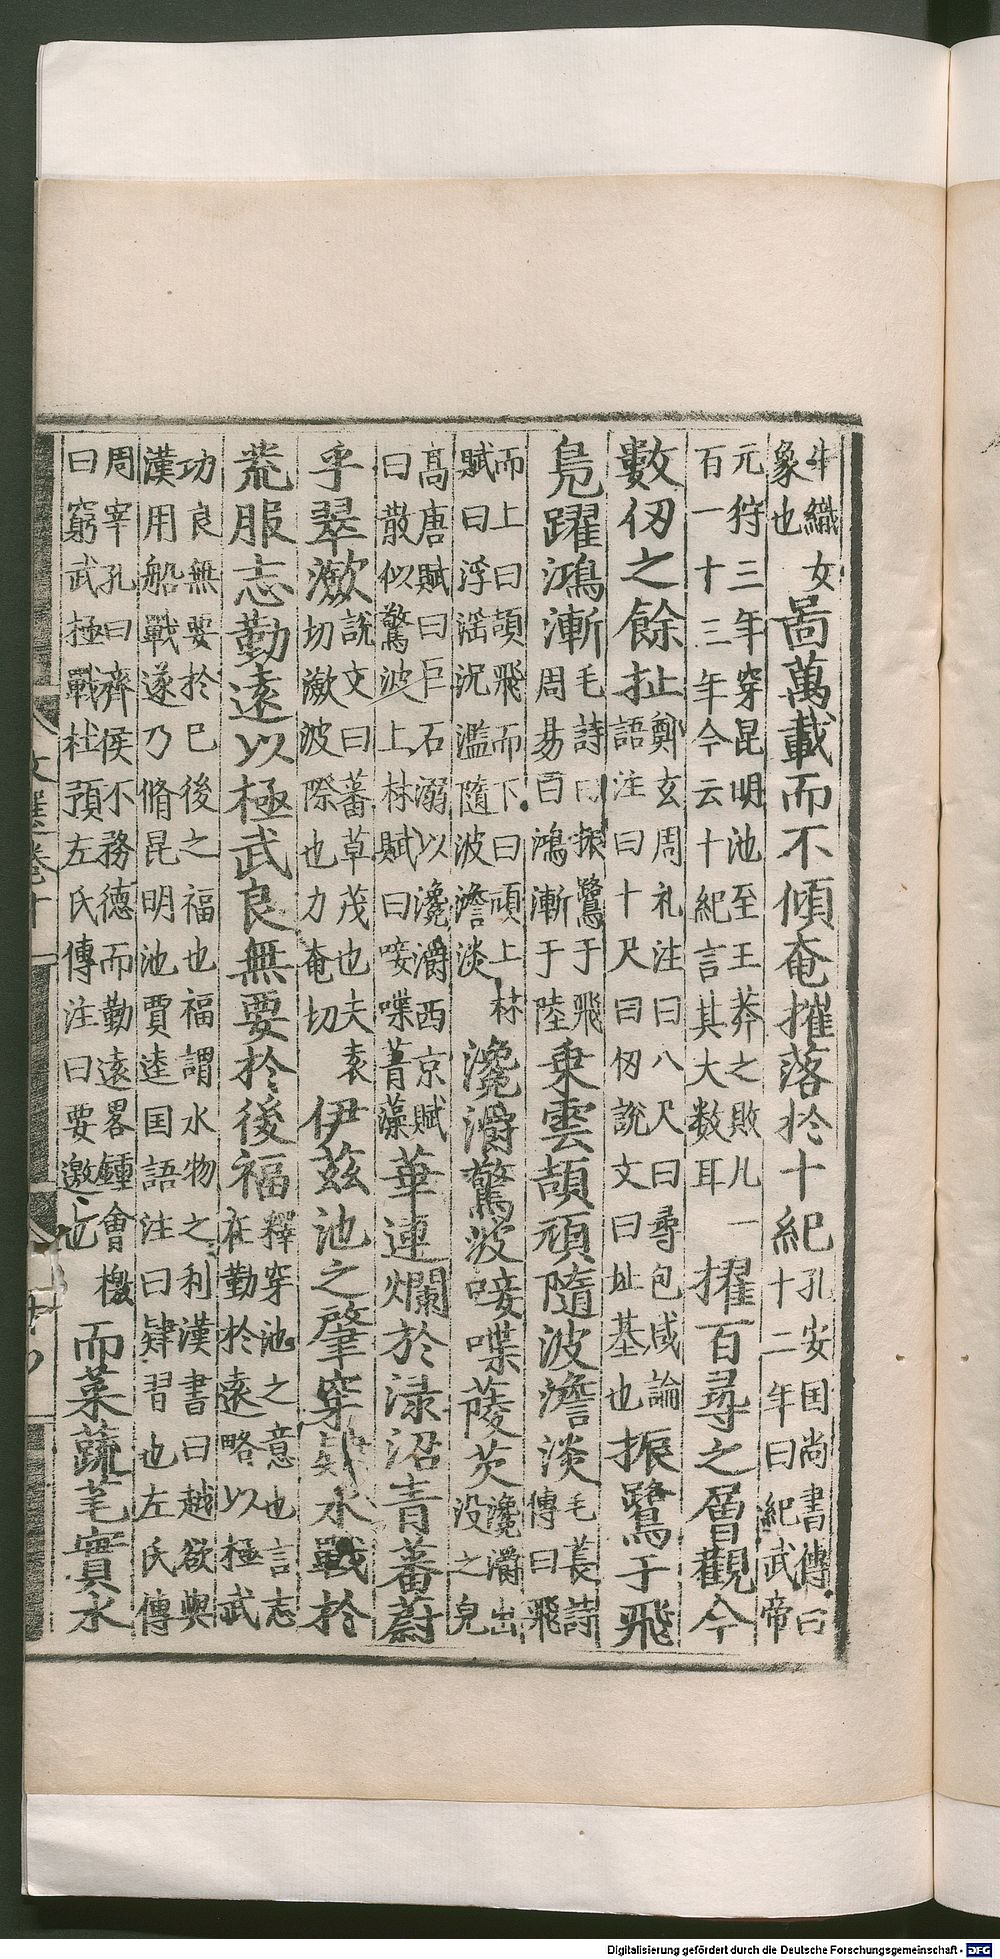 牛織女
象也
啚萬載而不傾奄摧落扵十紀
孔安国尚書傳曰
十二年曰紀武帝
元狩三年穿昆明池至王莽之敗凡一
百一十三年今云十紀言其大数耳
擢百尋之層觀今
數仞之餘扯
鄭玄周礼注曰八尺曰尋包咸論
語注曰十尺曰仞說文曰址基也
振鷺于飛
鳧躍鴻漸
毛詩曰振鷺于飛
周昜曰鴻漸于陸
乗雲頡頏隨波澹淡
毛萇詩
傳曰飛
而上曰頡飛而下曰頏上林
賦曰浮滛汎濫隨波澹淡
瀺灂驚波唼喋蔆芡
瀺灂出
没之皃
高唐賦曰巨石溺以瀺灂西京賦
曰散似驚波上林賦曰唼喋菁藻
華連爛於渌沼青蕃蔚
乎翠瀲
說文曰蕃草茂也夫袁
切瀲波際也力奄切
伊茲池之肇穿肄水戰於
荒服志勤遠以極武良無要於後福
釋穿池之意也言志
在勤於遠略以極武
功良無要於已後之福也福謂水物之利漢書曰越欲與
漢用船戰遂乃脩昆明池賈逵国語注曰肄習也左氏傳
周宰孔曰齊侯不務德而勤遠畧鍾會檄
曰窮武極戰杜預左氏傳注曰要邀也
而菜蔬芼實水
文選卷十
Digitalisierung gefördert durch die Deutsche Forschungsgemeinschaft - DFG